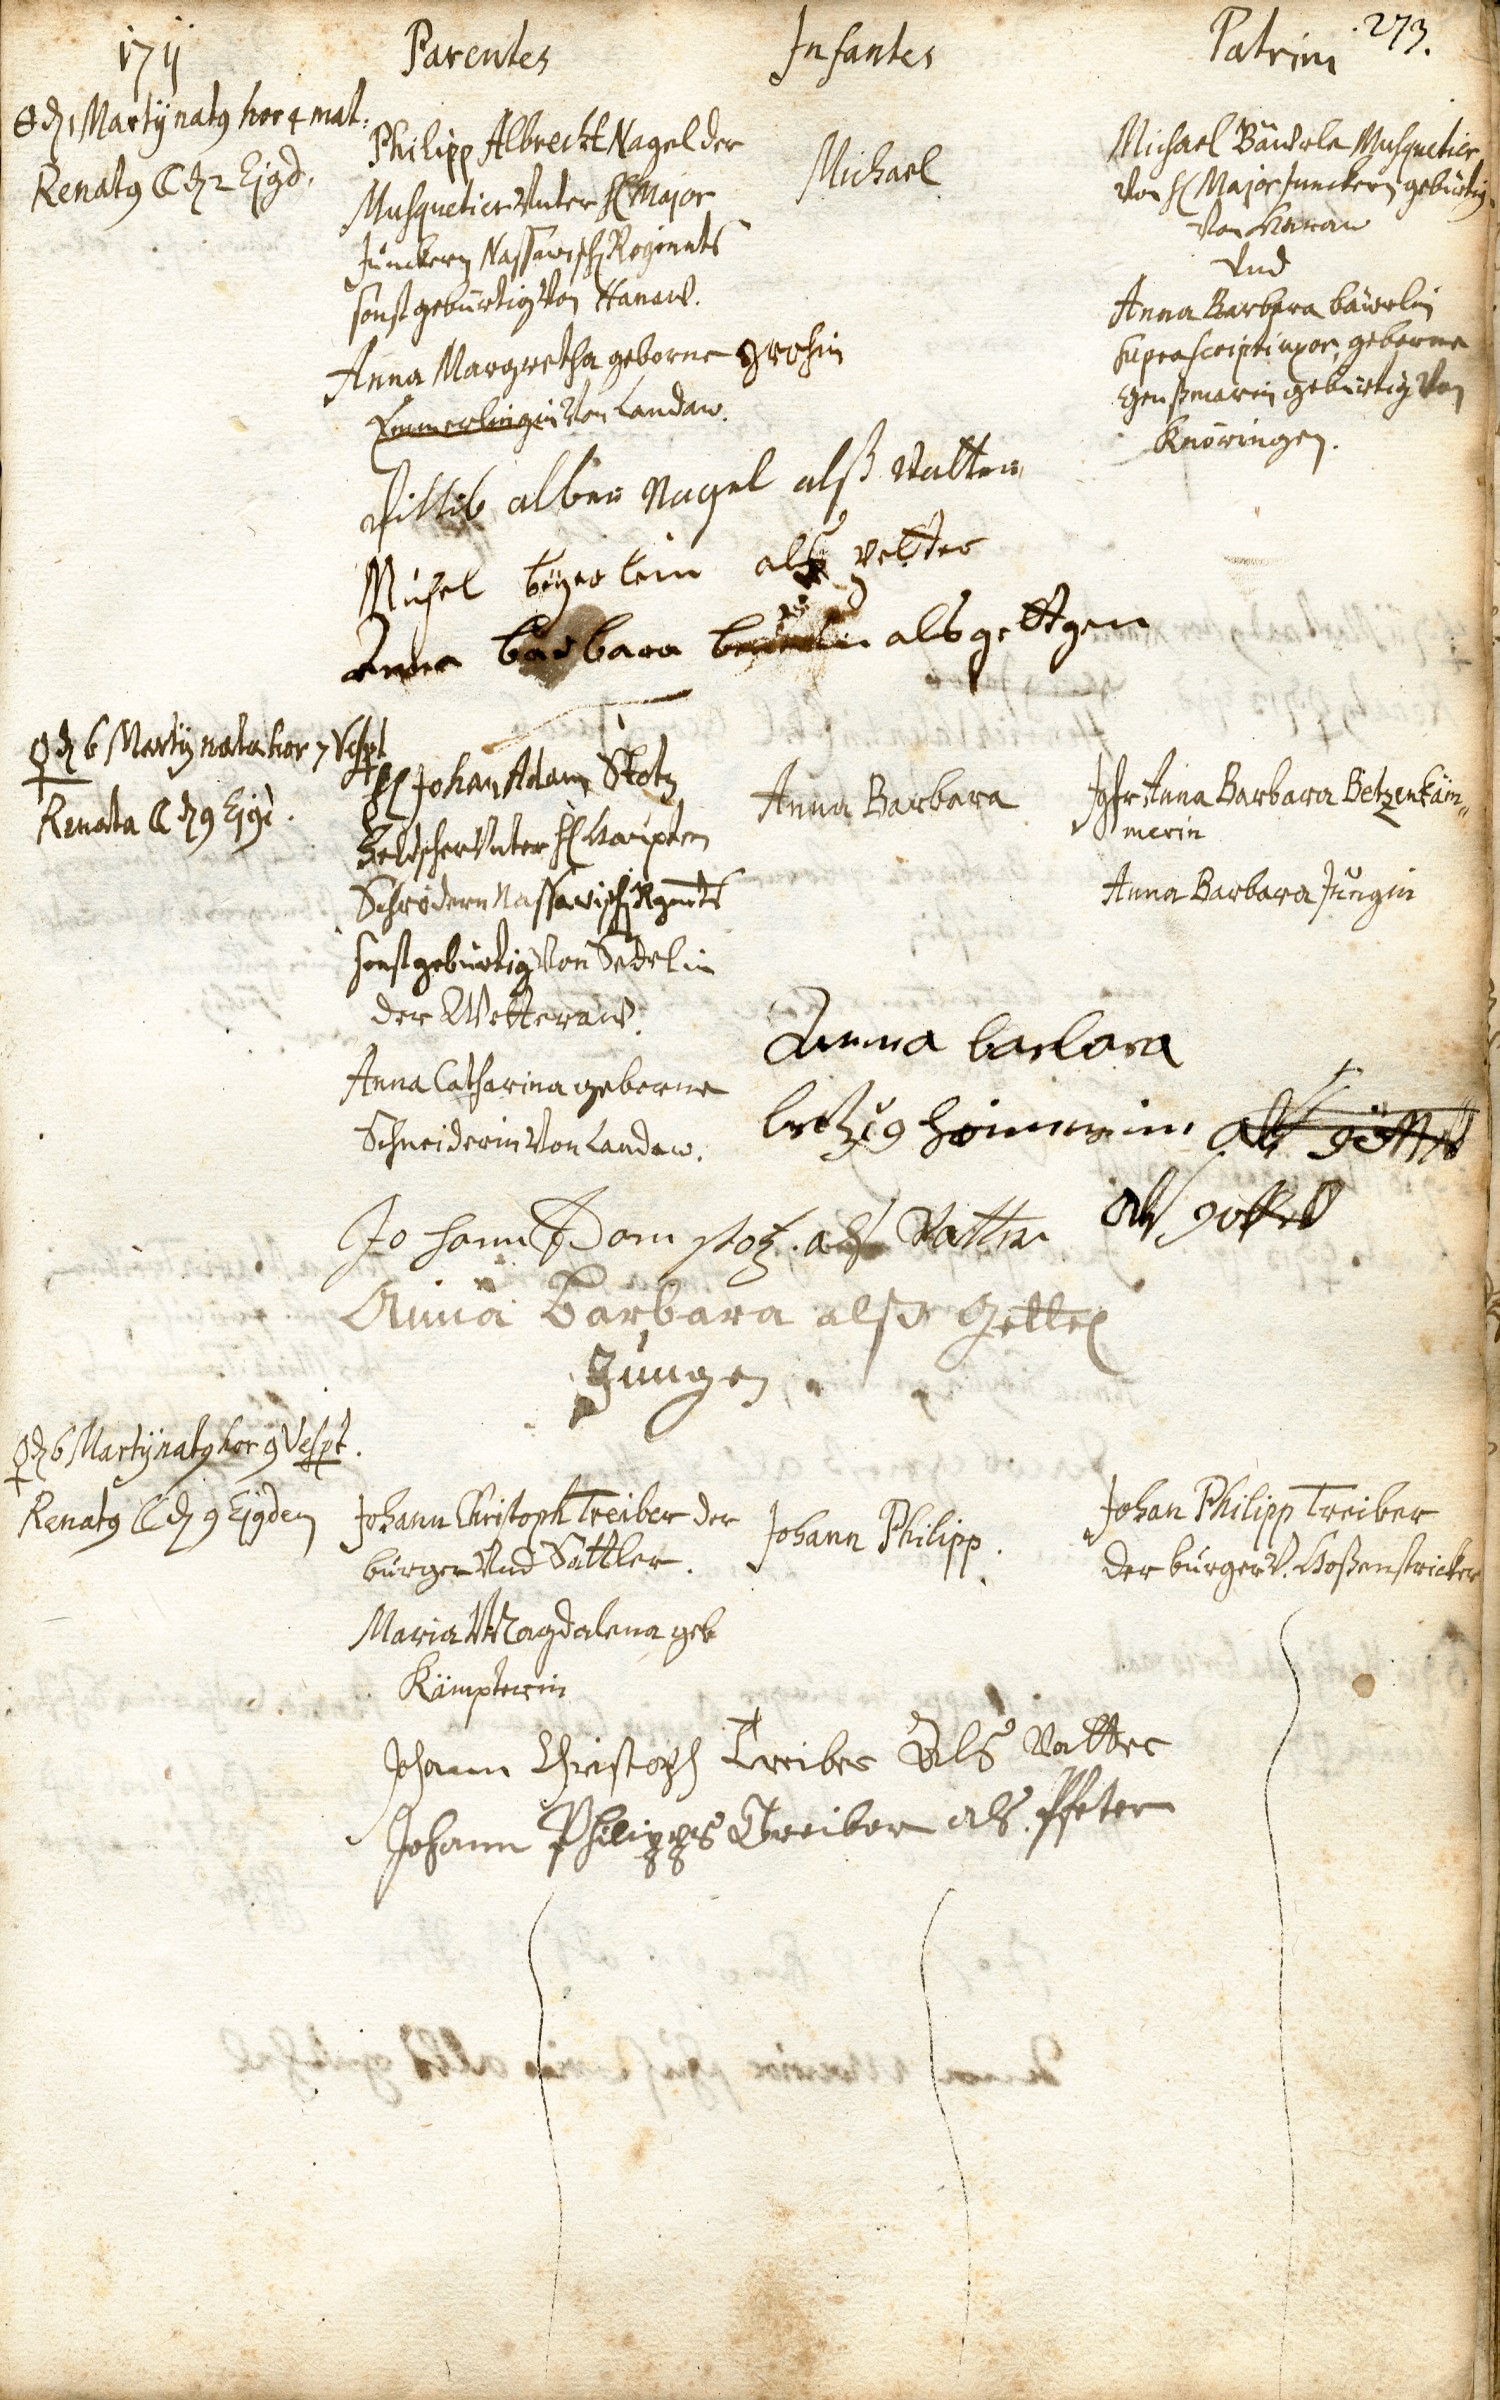 273.
1711 Parentes Infantes Patrini
☉ d 1 Martÿ natg hor 4 mat:
Renatg ☾ d 2 Ejgd.
Philipp Albrecht Nagel der
Musquetier Unter H Major
Junckern Nassawisch Regimts
sonst gebürtig Von Hanaw.
Anna Margretha geborne Grohin
Emmerlingin Von Landaw.
Michael
Michael Bäürle Musquetier
Von H Major Junckern gebürtig
Von
Und
Anna Barbara bäürlin
suprascripti uxor, geborne
gebürtig Von
Knöringen.
Villib alber Nagel alß Vatter
Michel als petter
Anna barbara als gettgen
♀ d 6 Martÿ nata hor 7 Vespt
Renata ☾ d 9 Ejgd.
H Johan Adam Stotz
Feldscher Unter H Hauptm
Schrödern Nassawisch Rgmts
sonst gebürtig Von Sedel in
der Wetteraw.
Anna Catharina geborne
Schneiderin Von Landaw.
Anna Barbara
Jgfr Anna Barbara Betzenkäm-
merin
Anna Barbara Jungin
Anna barbara
als göttel
als gottel
Johann Adam stotz. als Vatter
Anna Barbara alß Gettel
Jungen
♀ d 6 Martÿ natg hor 9 Vespt.
Renatg ☾ d 9 Ejgdem
Johann Christoph Treiber der
bürger Und Sattler.
Maria Magdalena geb
Kämpterin
Johann Philipp.
Johan Philipp Treiber
der bürger V. Hoßenstricker
Johann Christoph Treiber Als Vatter
Johann Philipps Treiber als. Pfeter